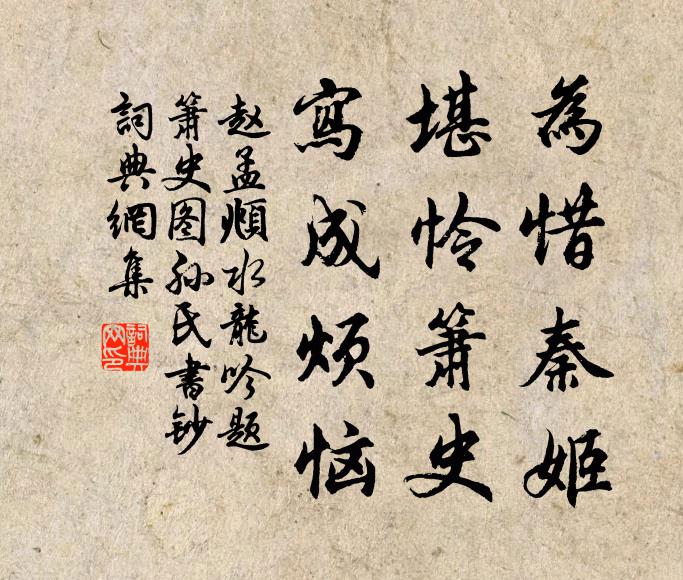 為惜秦姬
堪怜箫史
寫成烦恼
赵孟頫水龍吟题
箫史图孙氏書鈔
詞典網集
詞典網印